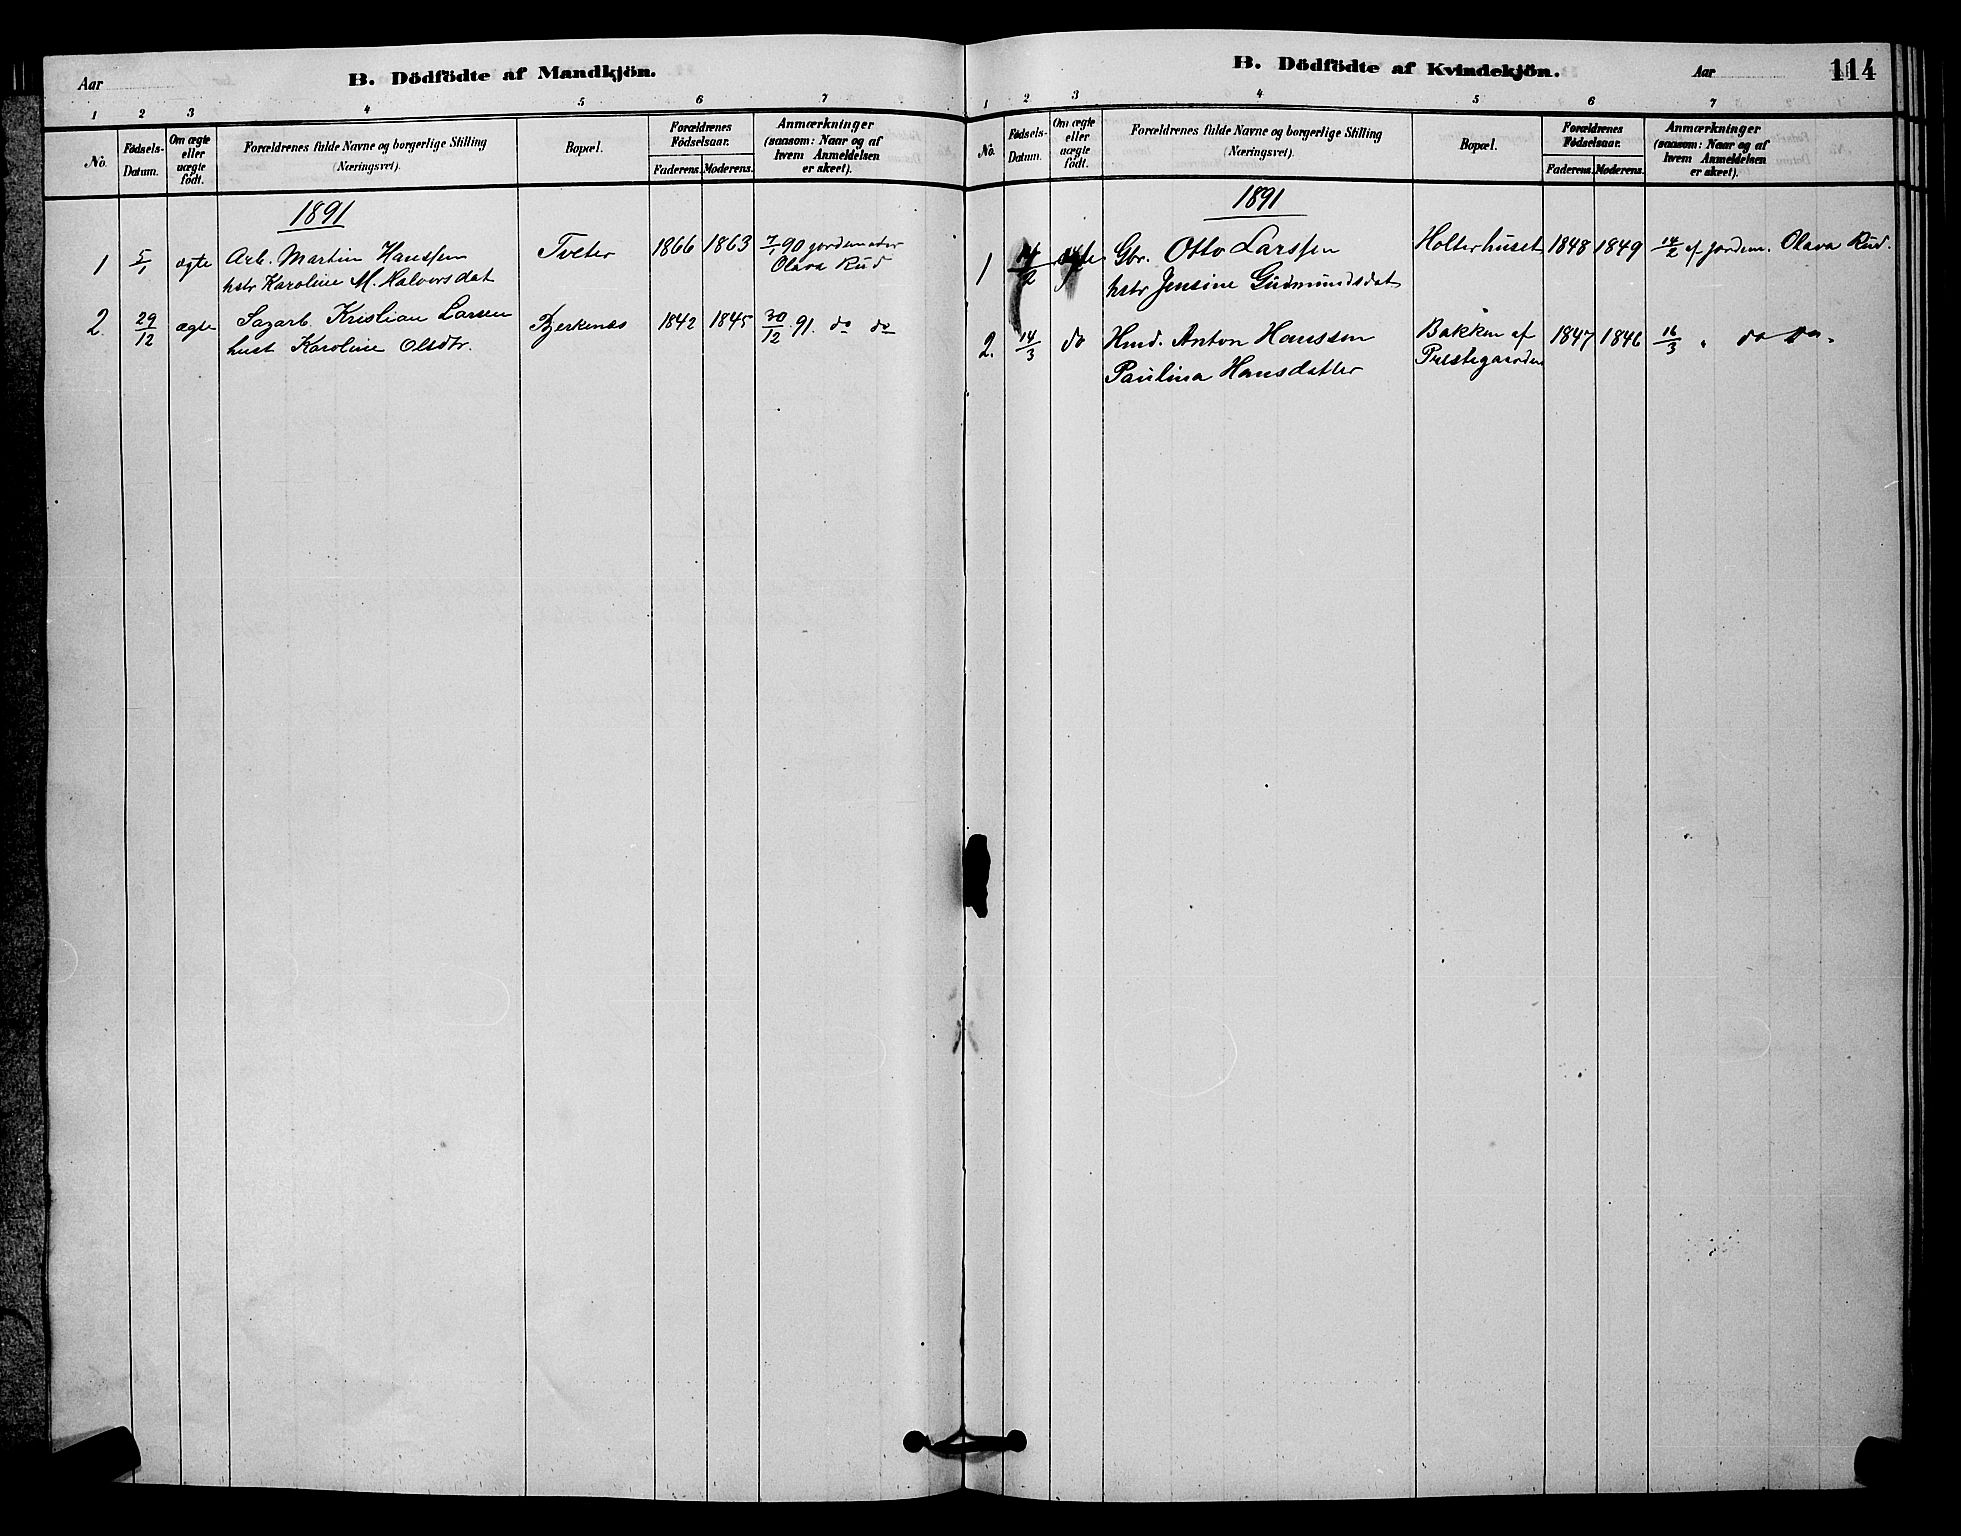 Aar
B. Dödfödte af Mandkjön.
1 2 3 4 5 6 7
No.
Födsels-Datum.
Om ægte eller uægte födt.
Forældrenes fulde Navne og borgerlige Stilling (Næringsvei).
Bopæl.
Forældrenes Födselsaar.
Faderens. Moderens.
Anmærkninger (saasom: Naar og af hvem Anmeldelsen er skeet).
1891
1 5/1 ægte Arb. Martin Hanssen Tveter 1866 1863 7/1 90 jordemoder
hstr Karoline M. Halvorsdat Olava Rud
2. 29/12 ægte Sagarb. Kristian Larsen Bjerkenes 1842 1845 30/12 91. do do
hust Karoline Olsdtr.
B. Dödfödte af Kvindekjön.
Aar
114
1 2 3 4 5 6 7
No.
Födsels-Datum.
Om ægte eller uægte födt.
Forældrenes fulde Navne og borgerlige Stilling (Næringsvei).
Bopæl.
Forældrenes Födselsaar.
Faderens. Moderens.
Anmærkninger (saasom: Naar og af hvem Anmeldelsen er skeet).
1891
1 14/2 ægte Gbr. Otto Larssen Holterhuset 1848 1849 14/2 af jordem. Olava Rud.
hstr Jensine Gudmundsdat
2. 14/3 do Hmd. Anton Hanssen Bakken af 1847 1846 16/3 " do do.
Paulina Hansdatter Prestegaarden